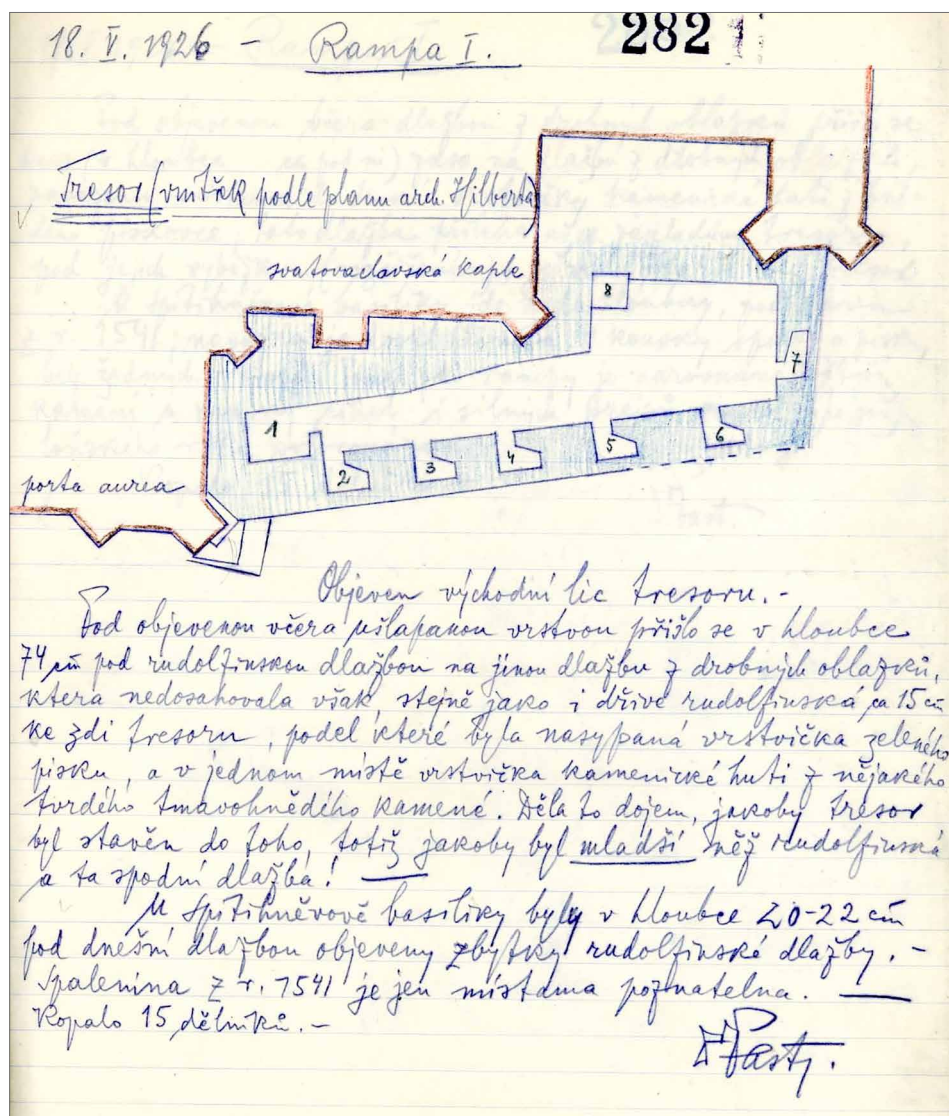 18. V. 1926 – Rampa I.
282
Tresor (vnitřek podle planu arch. Hilberta)
svatovaclavská kaple
8
7
1
2
3
4
5
6
porta aurea
Objeven východní líc tresoru. –
Pod objevenou včera ušlapanou vrstvou přišlo se v hloubce
74 cm pod rudolfinskou dlažbou na jinou dlažbu z drobných oblazků,
ktera nedosahovala však, stejně jako i dříve rudolfinská ca 15 cm
ke zdi tresoru, podel které byla nasypaná vrstvička zeleného
pisku, a v jednom místě vrstvička kamenické huti z nějakého
tvrdého tmavohnědého kamené. Děla to dojem, jakoby tresor
byl stavěn do toho, totiž jakoby byl mladší něž rudolfinská
a ta spodní dlažba!
U Spitihněvově basiliky byly v hloubce 20-22 cm
pod dnešní dlažbou objeveny zbytky rudolfinské dlažby. –
Spalenina z r. 1541 je jen místama poznatelna. —
Kopalo 15 dělniků. –